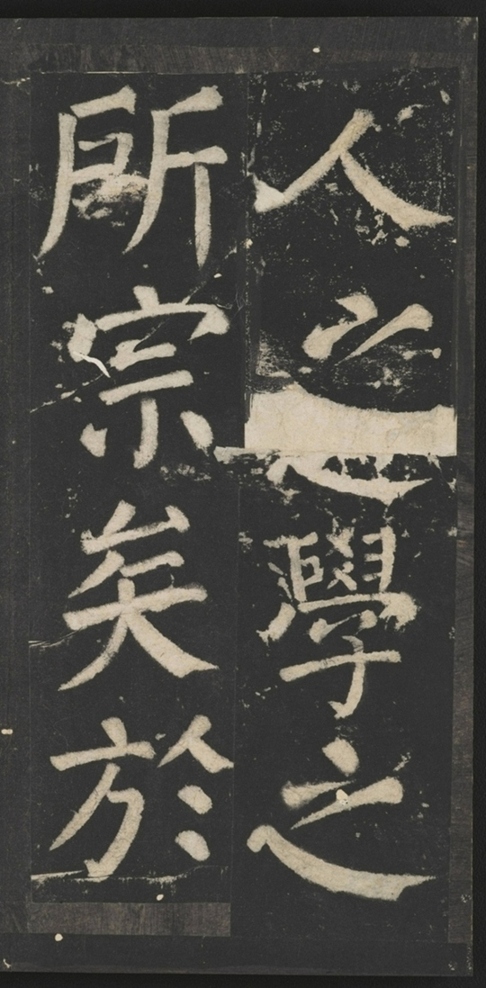 人之學之
所宗矣於